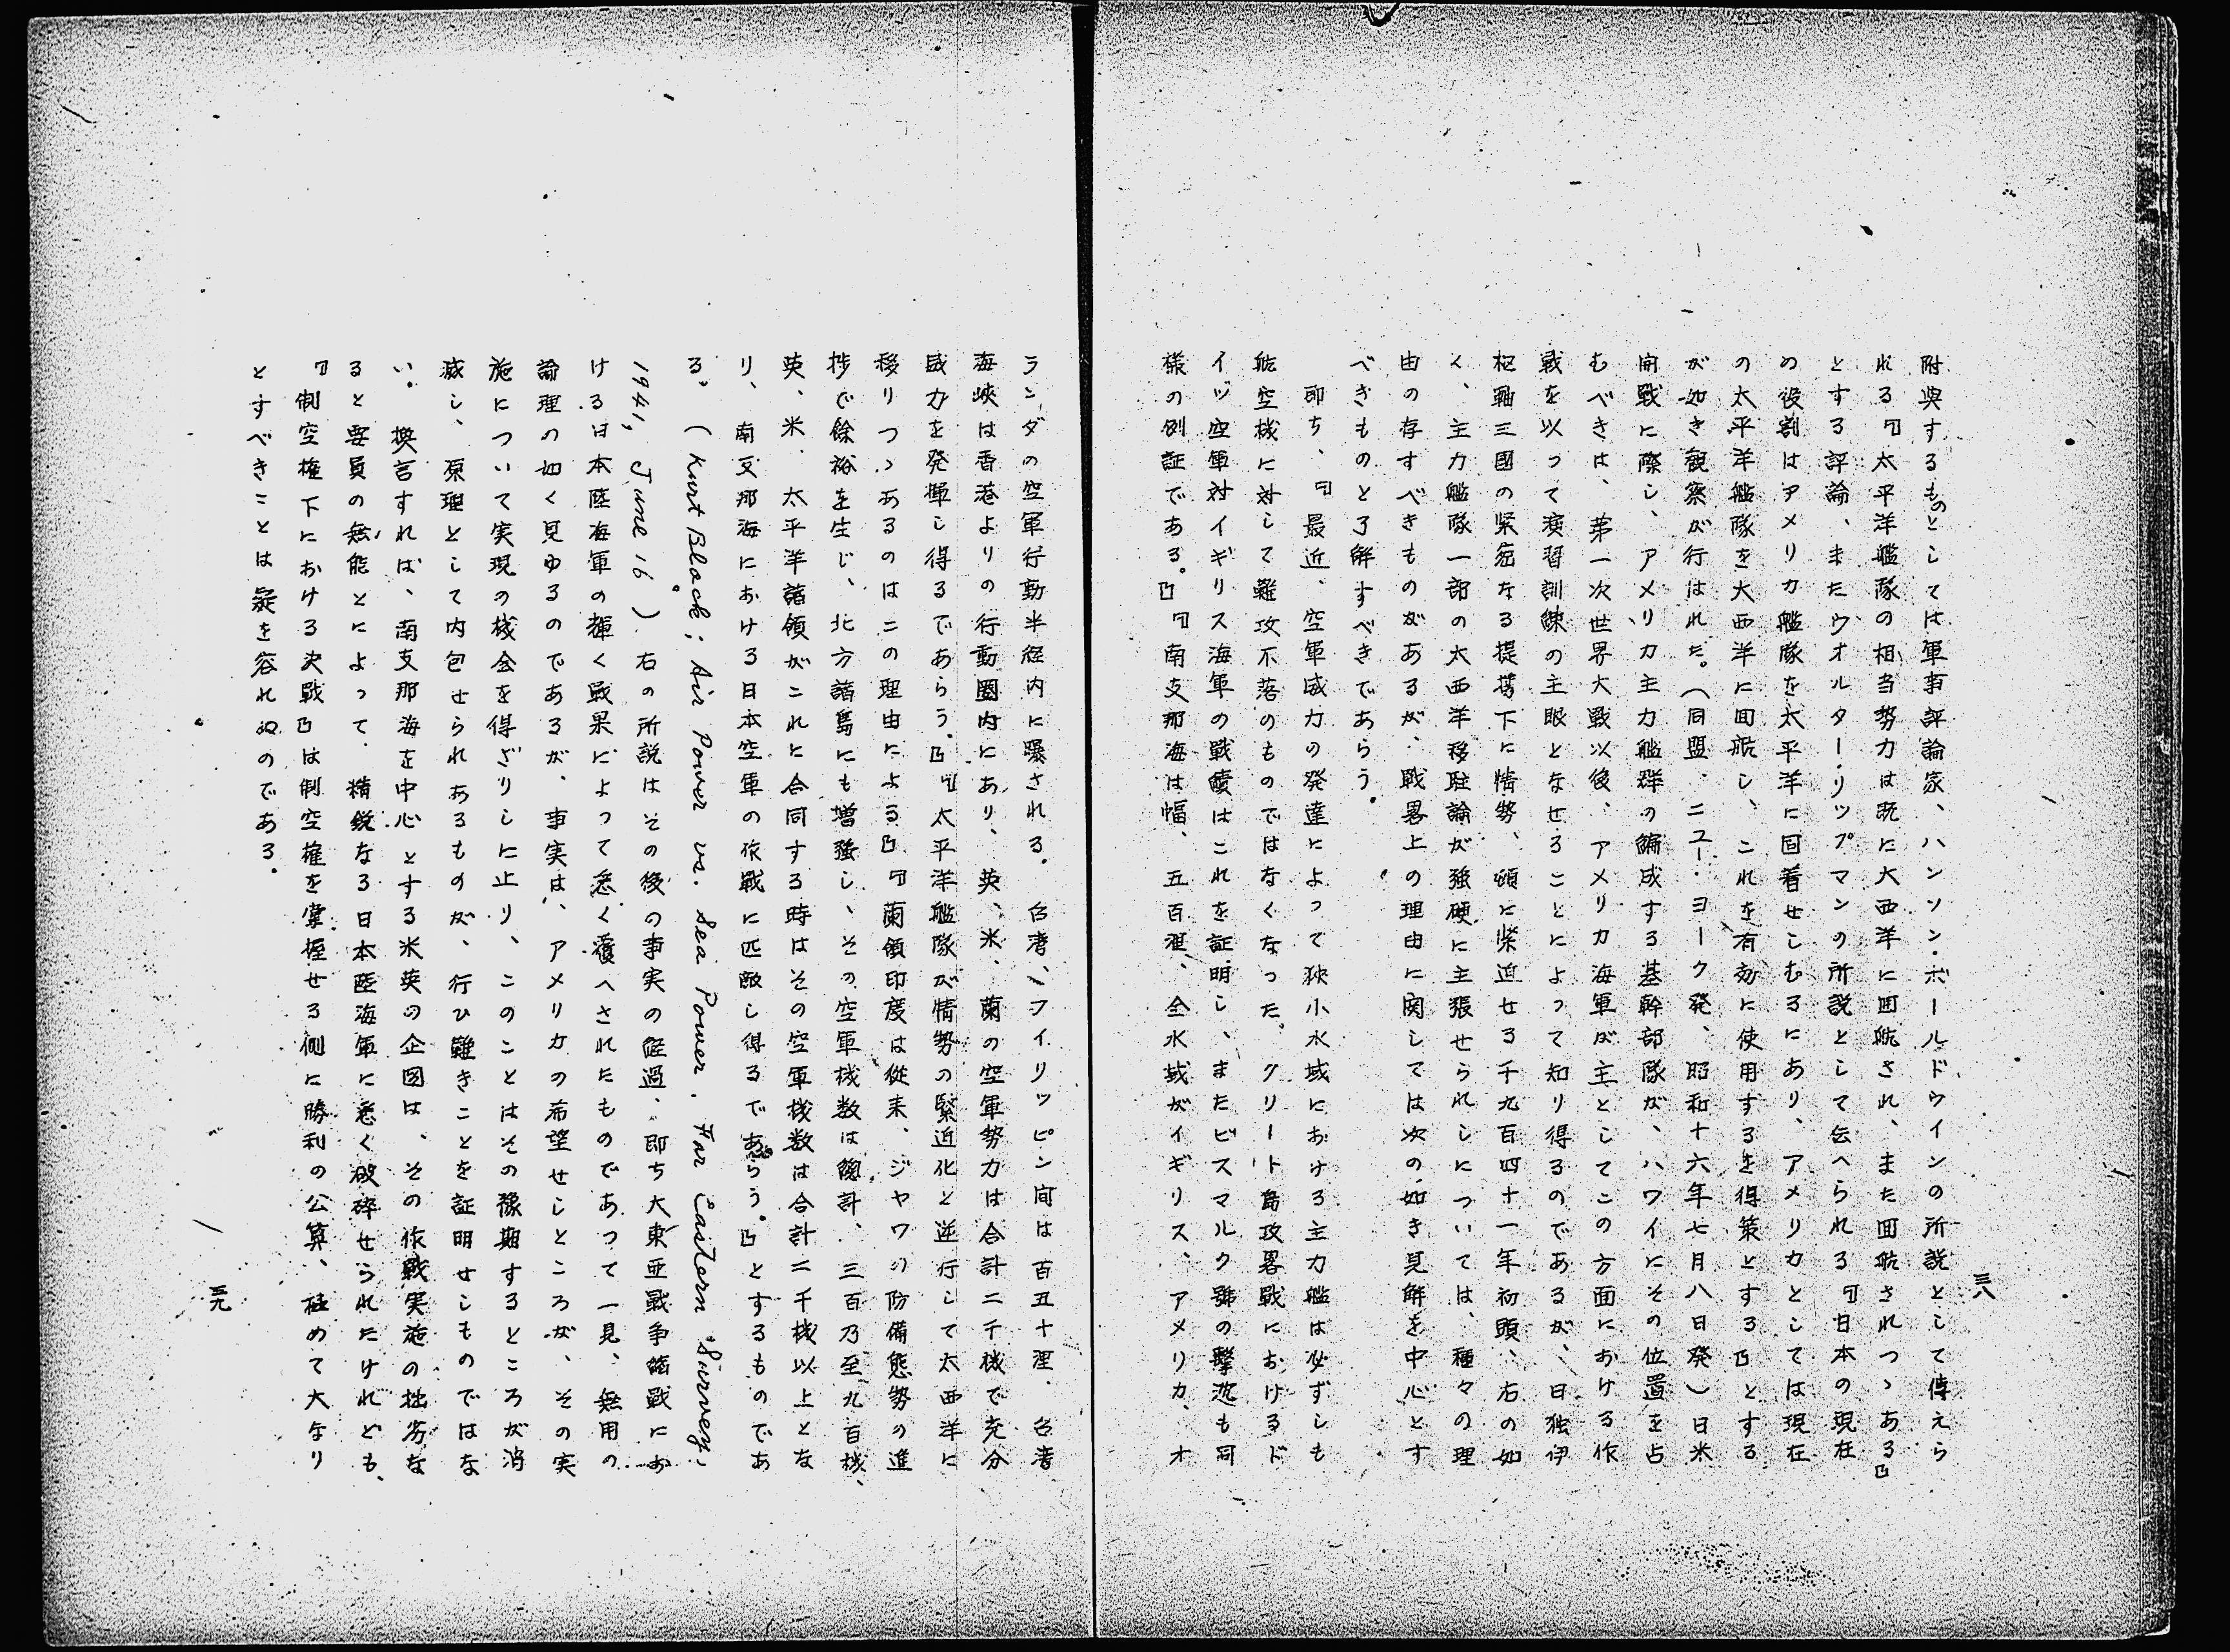 三八
附與するものとしては軍事評論家、ハンソン・ボールドウインの所説として傳えら
れる『太平洋艦隊の相当勢力は既に大西洋に囬航され、また囬航されつゝある』
とする評論、またウオルター・リップマンの所説として伝へられる『日本の現在
の役割はアメリカ艦隊を太平洋に固着せしむるにあり、アメリカとしては現在
の太平洋艦隊を大西洋に囬航し、これを有効に使用するを得策とする』とする
が如き観察が行はれた。(同盟、ニユー・ヨーク発、昭和十六年七月八日発)日米
開戦に際し、アメリカ主力艦群の編成する基幹部隊が、ハワイにその位置を占
むべきは、第一次世界大戦以後、アメリカ海軍が主としてこの方面における作
戦を以って演習訓練の主眼となせることによって知り得るのであるが、日独伊
枢軸三國の緊密なる提携下に情勢、頓に緊迫せる千九百四十一年初頭、右の如
く、主力艦隊一部の大西洋移駐論が強硬に主張せられしについては、種々の理
由の存すべきものがあるが、戦畧上の理由に関しては次の如き見解を中心とす
べきものと了解すべきであらう。
即ち、『最近、空軍威力の発達によって狭小水域における主力艦は必ずしも
航空機に対して難攻不落のものではなくなった。クリート島攻畧戦におけるド
イツ空軍対イギリス海軍の戦績はこれを証明し、またビスマルク號の撃沈も同
様の例証である。』『南支那海は幅、五百浬、全水域がイギリス、アメリカ、オ
ランダの空軍行動半徑内に曝される。台湾、フイリッピン間は百五十浬、台湾
海峡は香港よりの行動圏内にあり、英、米、蘭の空軍勢力は合計二千機で充分
威力を発揮し得るであらう。』『太平洋艦隊が情勢の緊迫化と逆行して大西洋に
移りつゝあるのはこの理由による』『蘭領印度は從来、ジヤワの防備態勢の進
捗で餘裕を生じ、北方諸島にも増強し、その空軍機数は総計、三百乃至九百機、
英、米、太平洋諸領がこれに合同する時はその空軍機数は合計二千機以上とな
り、南支那海における日本空軍の作戦に匹敵し得るであらう。』とするものであ
る。(Kurt Block; Air Power vs. Sea Power. Far Eastern Survey,
1941, June 16)右の所説はその後の事実の経過、即ち大東亜戦争緒戦にお
ける日本陸海軍の輝く戦果によって悉く覆へされたものであって一見、無用の
論理の如く見ゆるのであるが、事実は、アメリカの希望せしところが、その実
施について実現の機会を得ざりしに止り、このことはその豫期するところが消
滅し、原理として内包せられあるものが、行ひ難きことを証明せしものではな
い。換言すれば、南支那海を中心とする米英の企図は、その作戦実施の拙劣な
ると要員の無能とによって、精鋭なる日本陸海軍に悉く破砕せられたけれども、
『制空権下における決戦』は制空権を掌握せる側に勝利の公算、極めて大なり
とすべきことは疑を容れぬのである。
三九